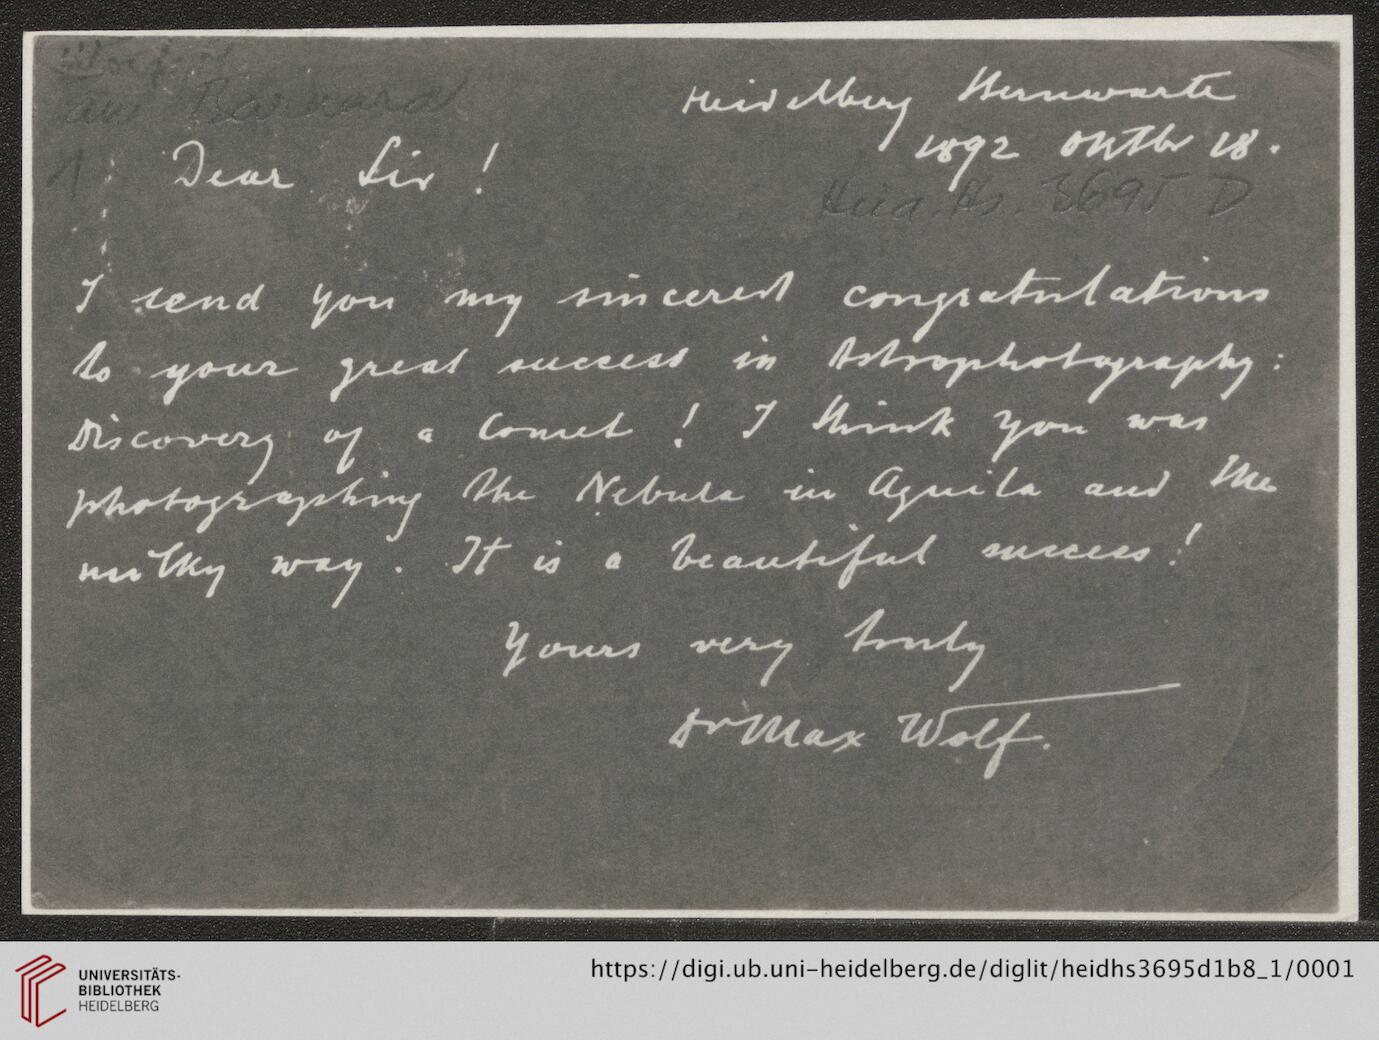 an Barnard
Heidelberg Sternwarte
1892 Oktbr 18.
1
Dear Sir !
Heid. Hs. 3695 D
I send you my sincerest congratulations
to your great success in Astrophotography:
Discovery of a Comet ! I think you was
photographing the Nebula in Aquila and the
milky way. It is a beautiful success!
Yours very truly
Dr Max Wolf.
UNIVERSITÄTS-
BIBLIOTHEK
HEIDELBERG
https://digi.ub.uni-heidelberg.de/diglit/heidhs3695d1b8_1/0001